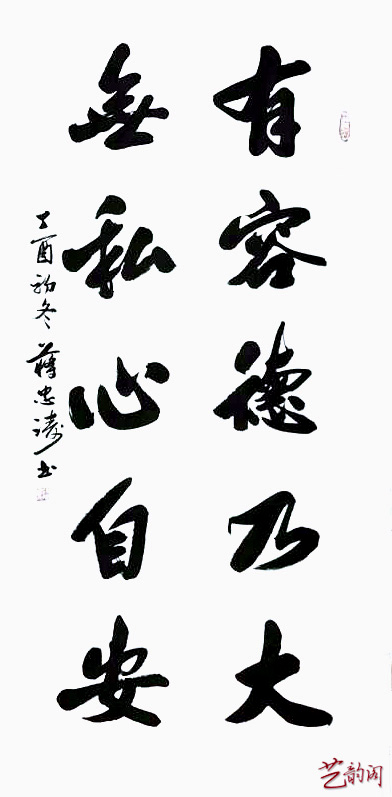 有容德乃大
無私心自安
丁酉初冬 蒋忠涛书
艺韵阁